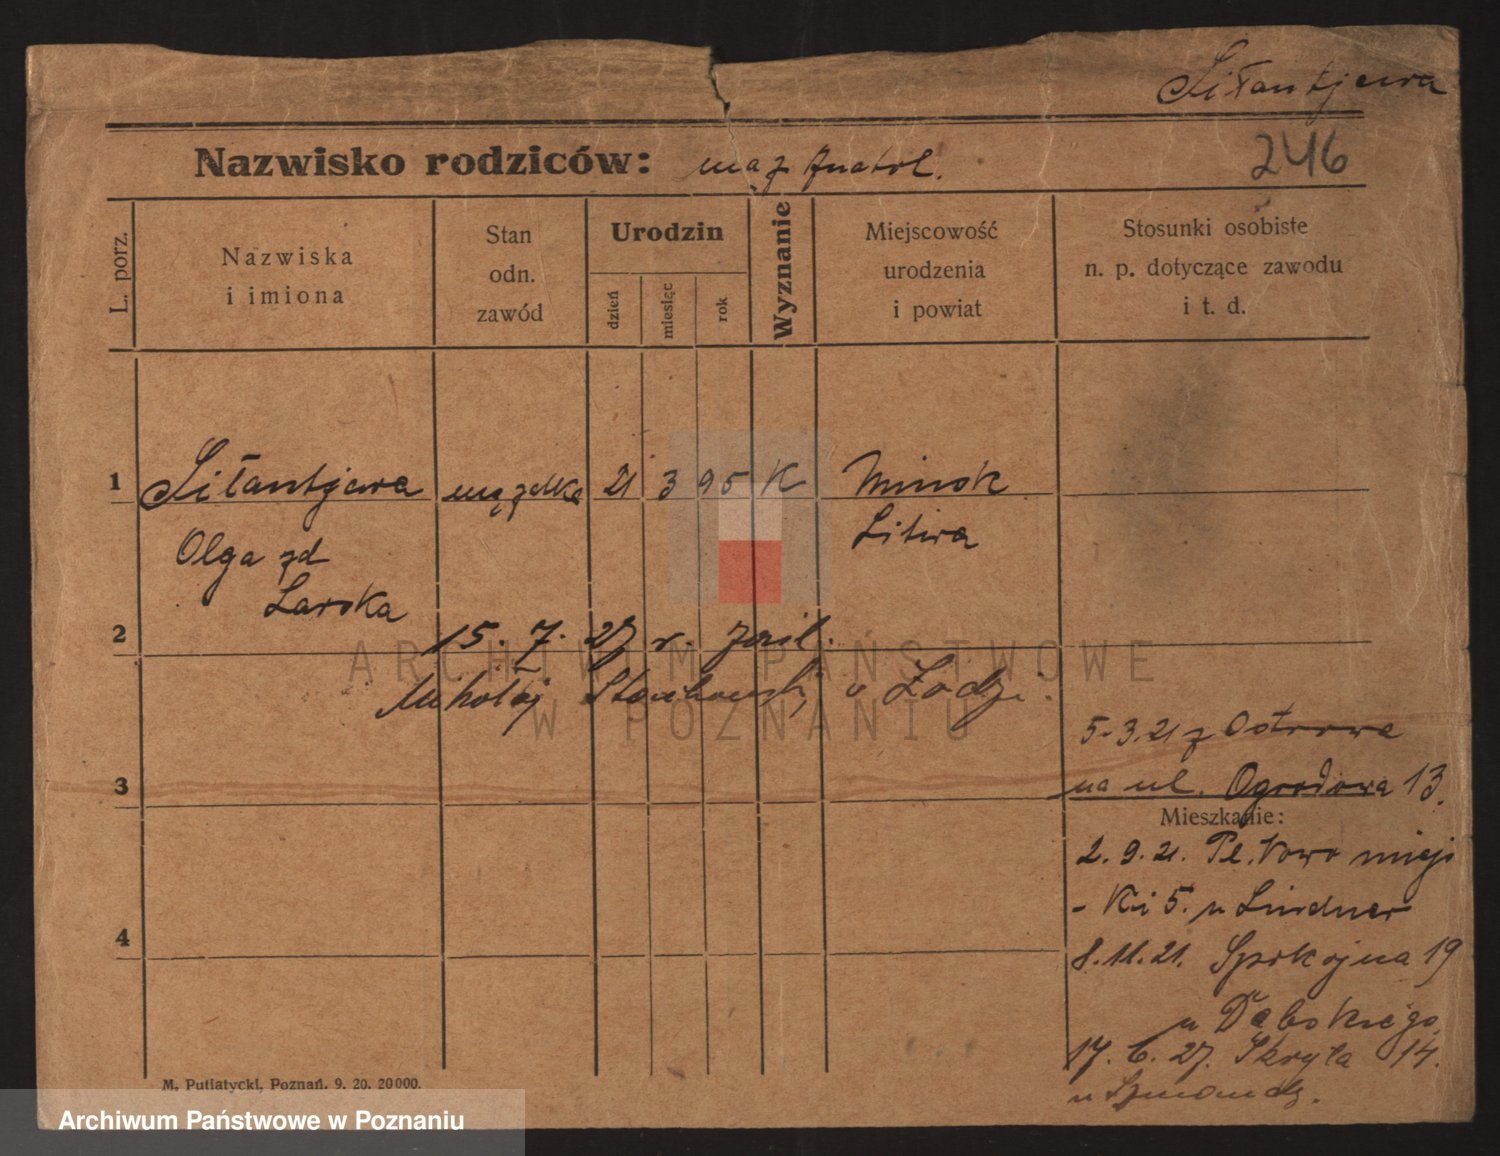 Siłantjewa
Nazwisko rodziców: mąż Anatol.
246
L. porz.
Nazwiska
i imiona
Stan
odn.
zawód
Urodzin
dzień
miesiąc
rok
Wyznanie
Miejscowość
urodzenia
i powiat
Stosunki osobiste
n. p. dotyczące zawodu
i t. d.
1 Siłantjewa mężatka 21 3 95 K Minsk
Olga zd Litwa
Larska
2 15. 7. 27 r.
Mikołaj w Łodzi.
5.3.21 z Ostrowa
3 na ul. Ogrodowa 13.
Mieszkanie:
2. 9. 21. Pl. Nowo miejs
- Ki 5. u Lindner
4
8. 11. 21. Spokojna 19
u Dębskiego
17. 6. 27. Skryta 14.
u
M. Putiatycki, Poznań. 9. 20. 20000.
ARCHIWUM PAŃSTWOWE
W POZNANIU
Archiwum Państwowe w Poznaniu